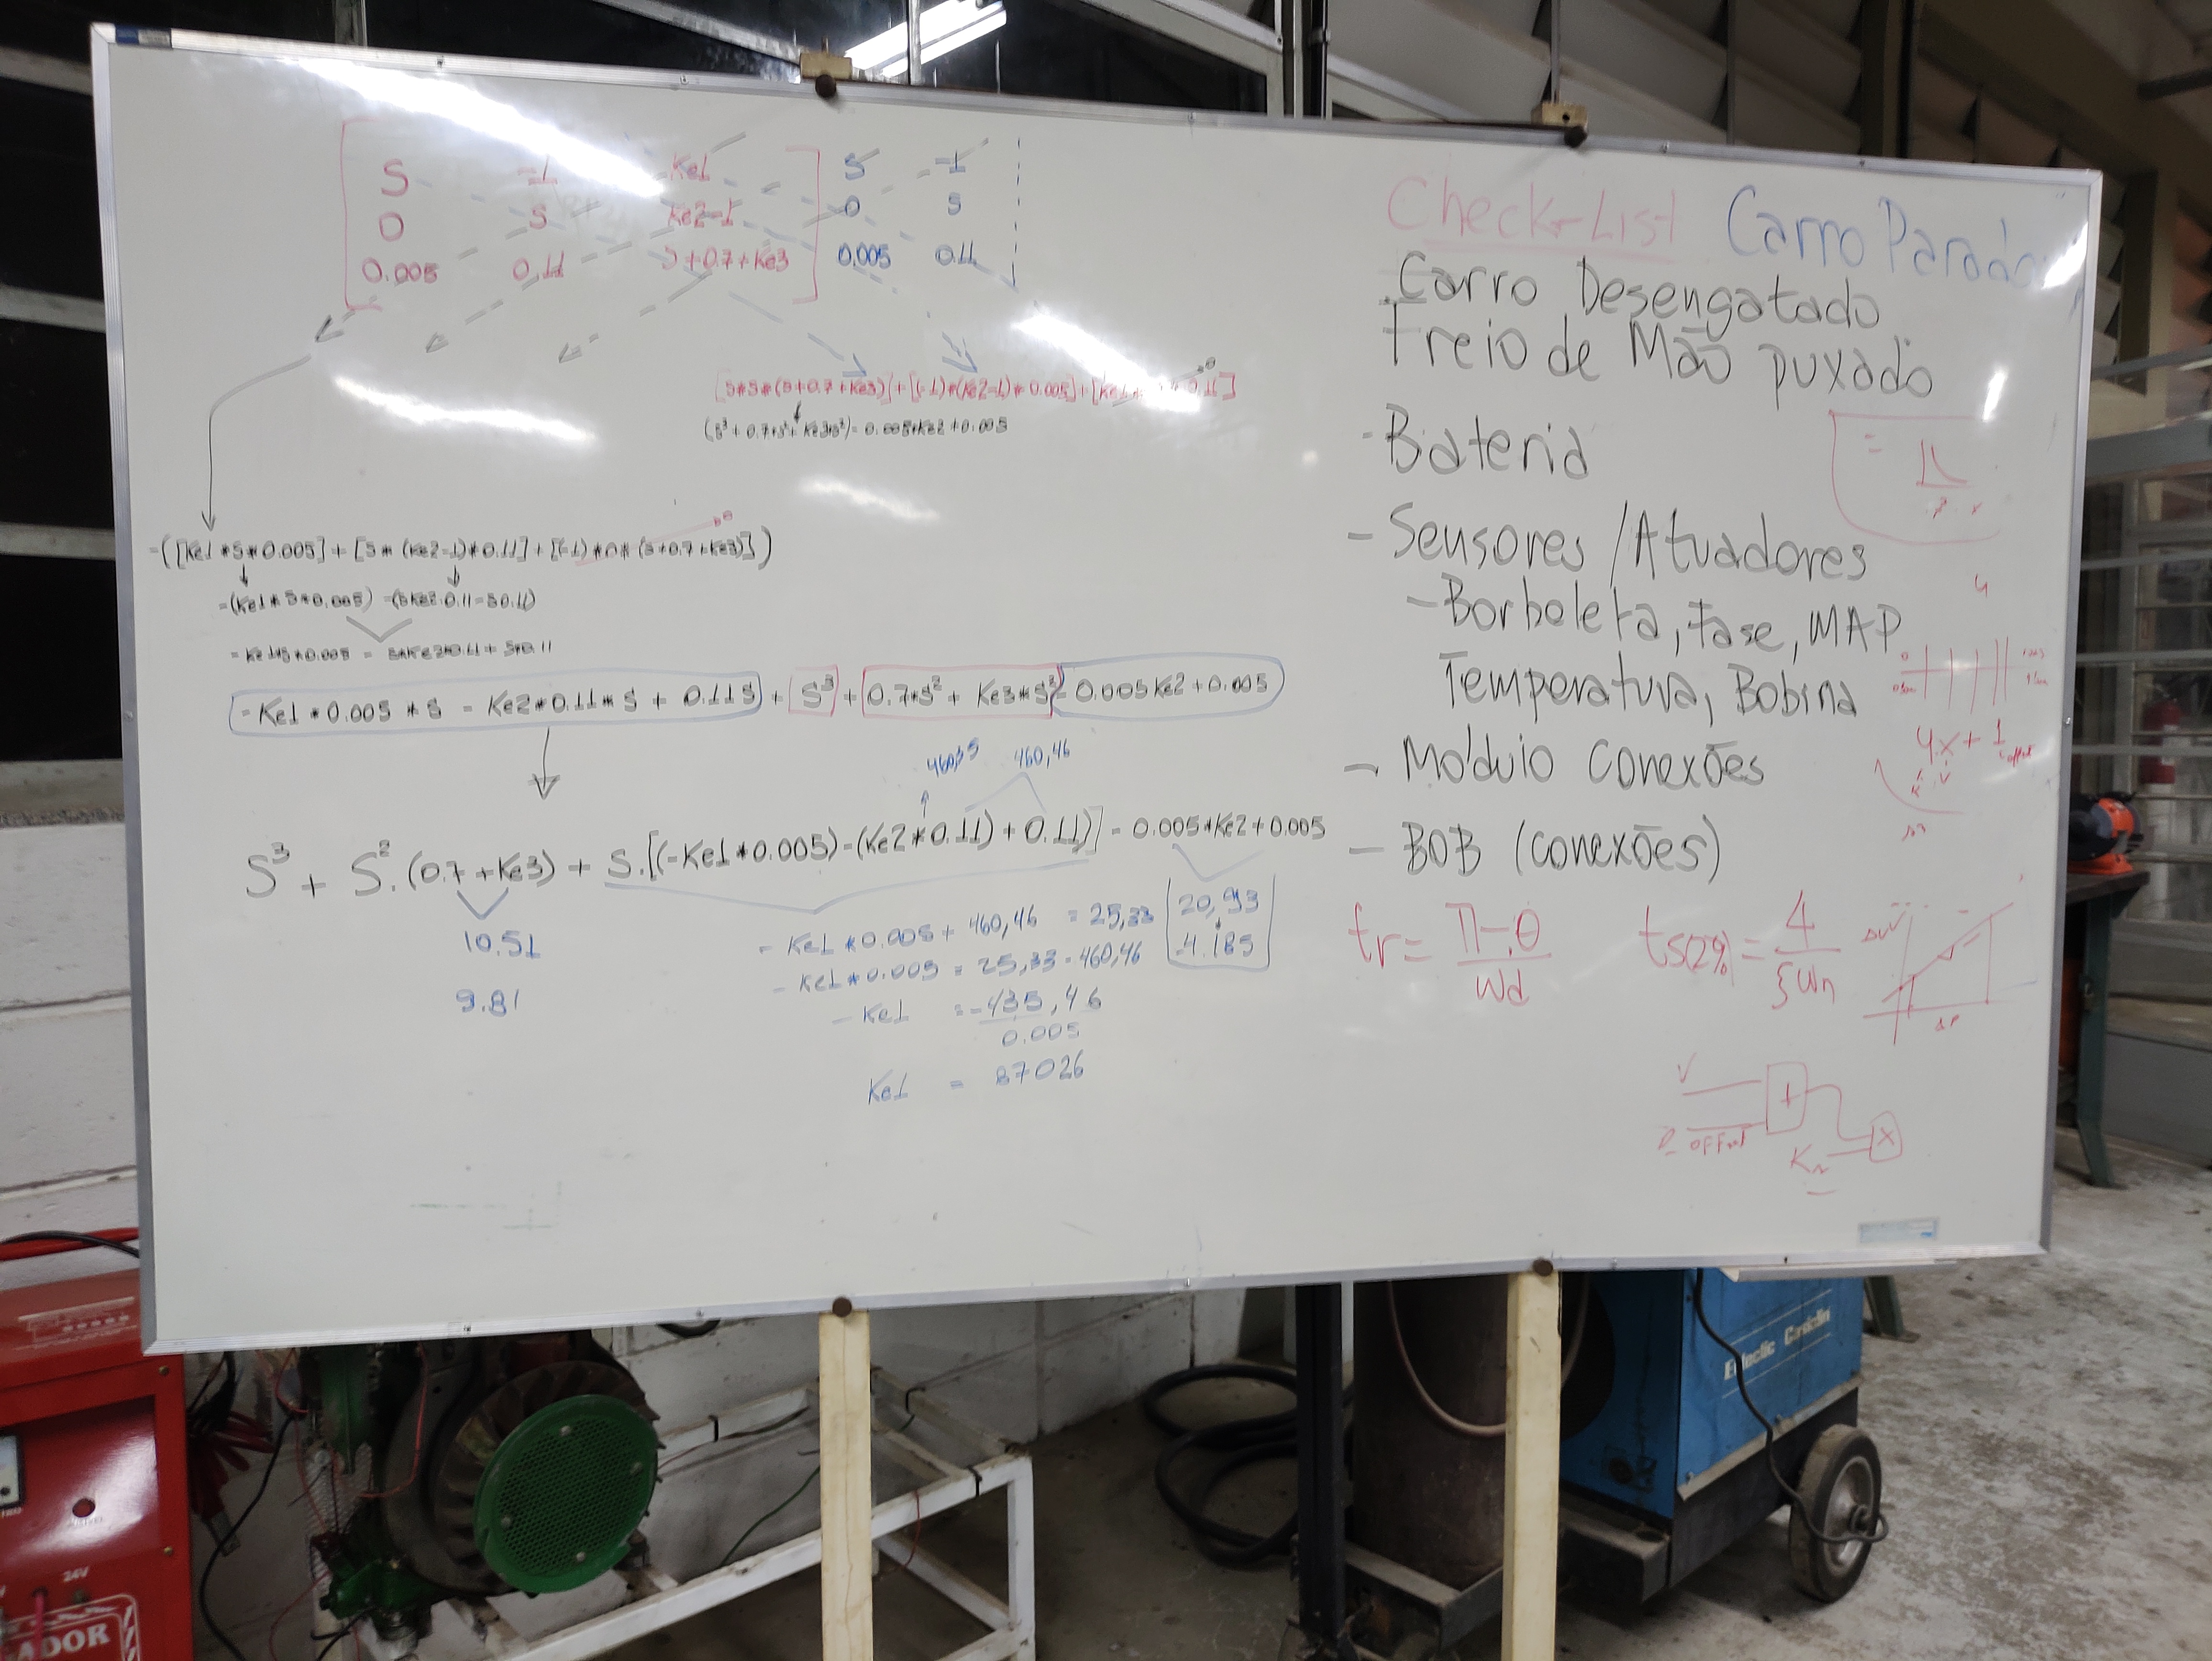 S -1 Ke1 S -1
0 S Ke2-1 0 S
0.005 0.11 S+0.7+Ke3 0.005 0.11
[S*S*(S+0.7+Ke3)]+[(-1)*(Ke2-1)*0.005]+[Ke1* 0.11]
(S³+0.7*S²+Ke3*S²)-0.005*Ke2+0.005
-([Ke1*S*0.005]+[S*(Ke2-1)*0.11]+[(-1)*0*(S+0.7+Ke3)])
-(Ke1*S*0.005) -(SKe2·0.11-S0.11)
-Ke1*S*0.005 - S*Ke2*0.11+S*0.11
-Ke1*0.005*S - Ke2*0.11*S + 0.11S + S³ + 0.7*S² + Ke3*S² - 0.005Ke2+0.005
460,35 460,46
S³ + S².(0.7+Ke3) + S.[(-Ke1*0.005)-(Ke2*0.11)+0.11)] - 0.005*Ke2+0.005
10.51
9.81
- Ke1*0.005 + 460,46 = 25,33
- Ke1*0.005 = 25,33-460,46
- Ke1 = -435,46
0.005
Ke1 = 87026
20,93
-4.185
Check-List Carro Parado
Carro Desengatado
Freio de Mão puxado
- Bateria
- Sensores /Atuadores
- Borboleta, fase, MAP
Temperatura, Bobina
- Módulo Conexões
- BOB (conexões)
tr= π-θ
wd
ts(2%)= 4
ξwn
4
4.x+1
offset
ΔV
ΔP
V
offset
+
x
24V
ADOR